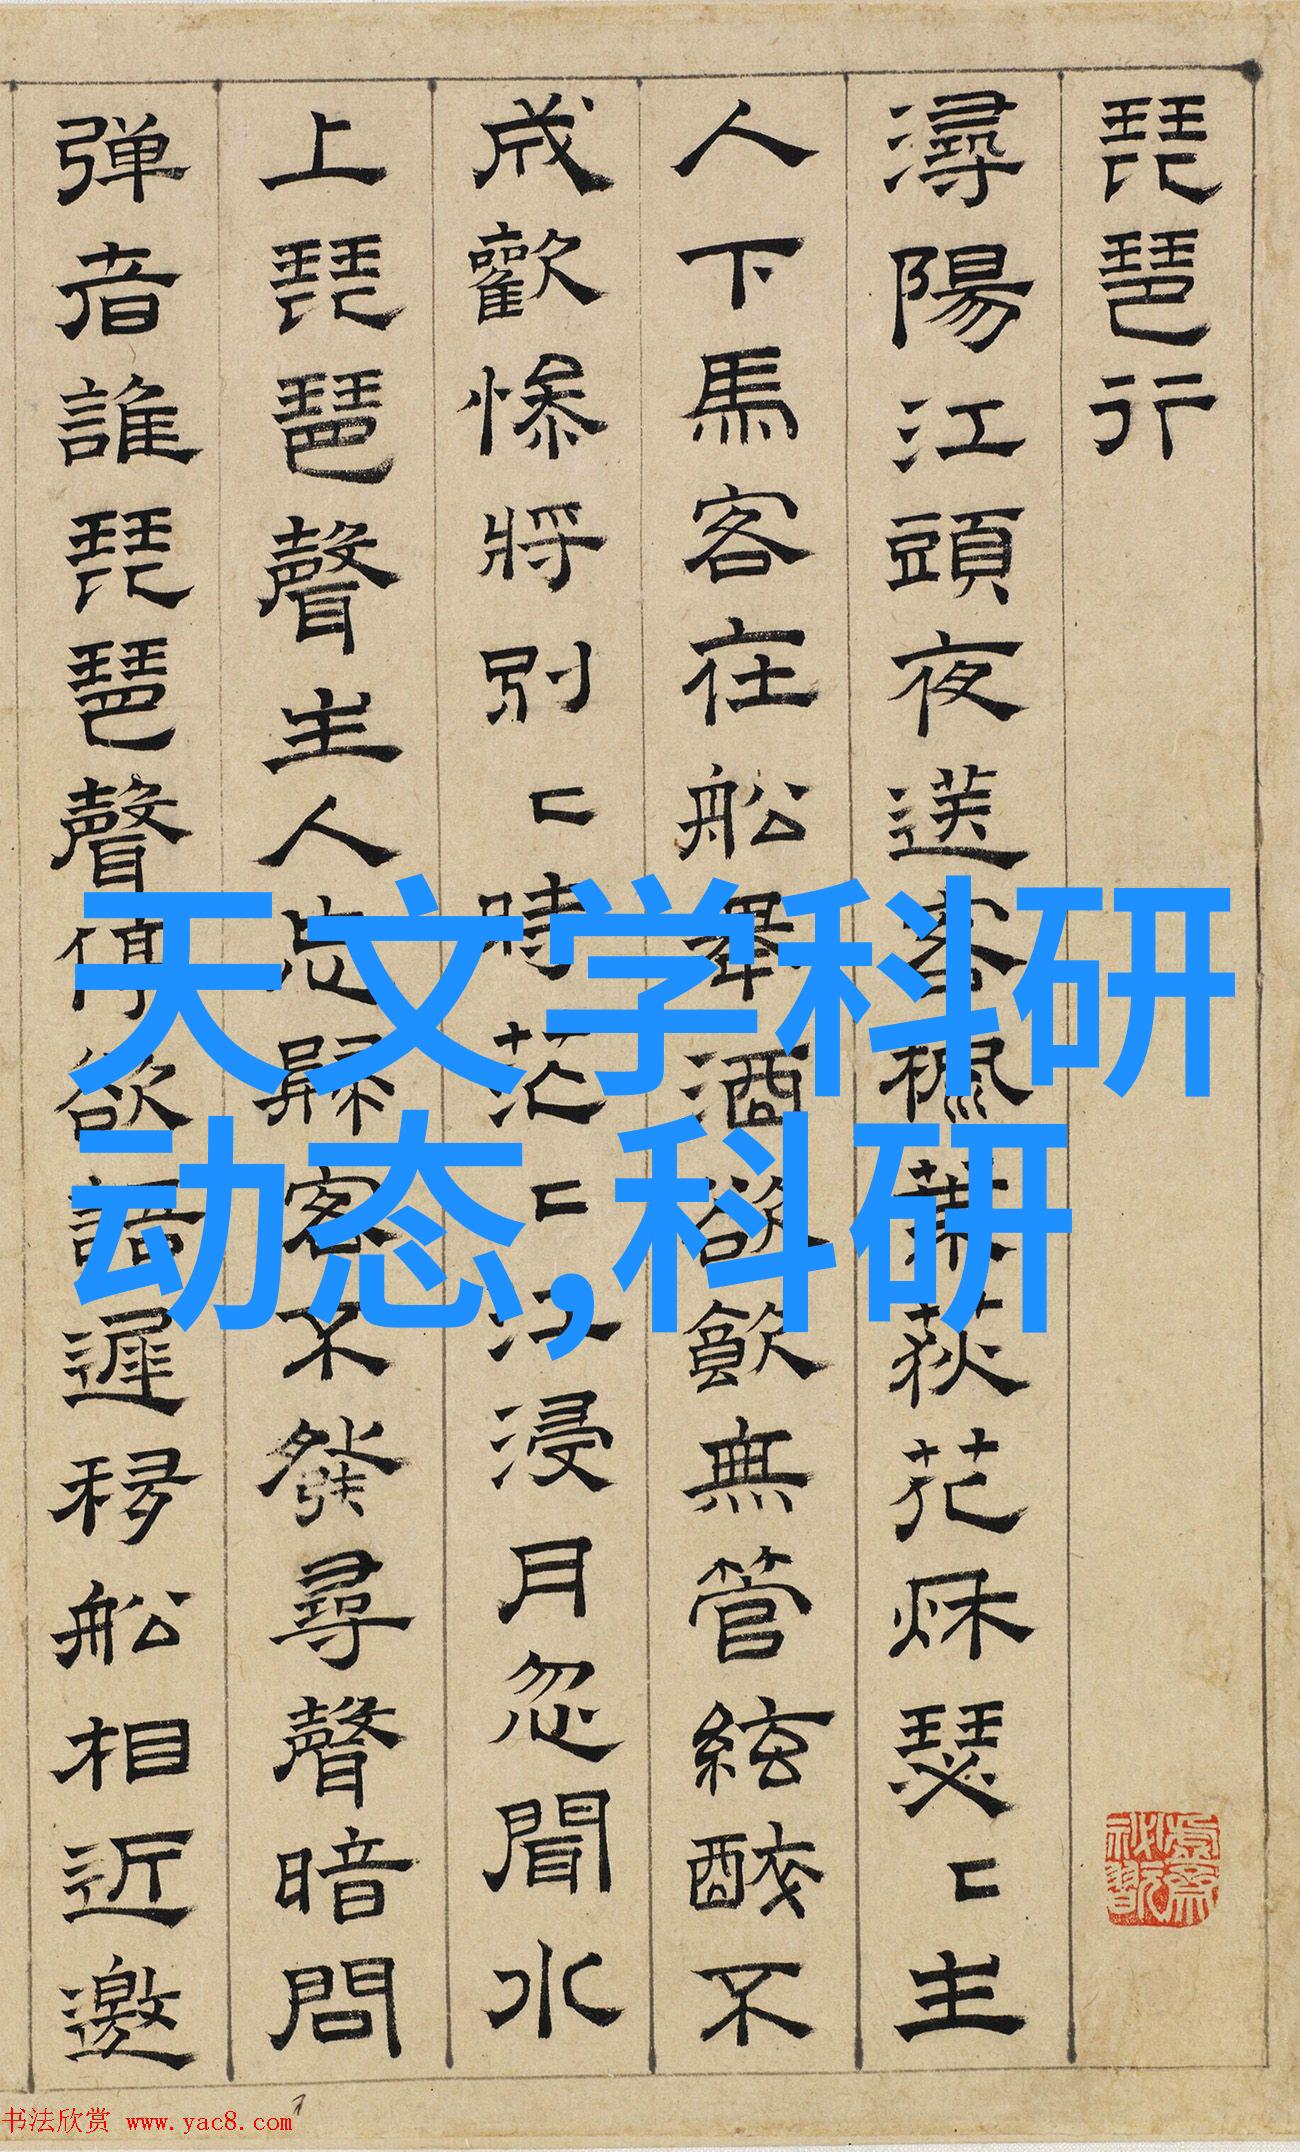 琵琶行
潯陽江頭夜送客楓葉荻花秌瑟〻主
人下馬客在船舉酒欲飲無管絃醉不
成歡慘將別〻時茫〻江浸月忽聞水
上琵琶聲主人忘歸客不發尋聲暗問
弹者誰琵琶聲停欲語遲移船相近邀
天文学科研
动态,科研
书法欣赏 www.yac8.com